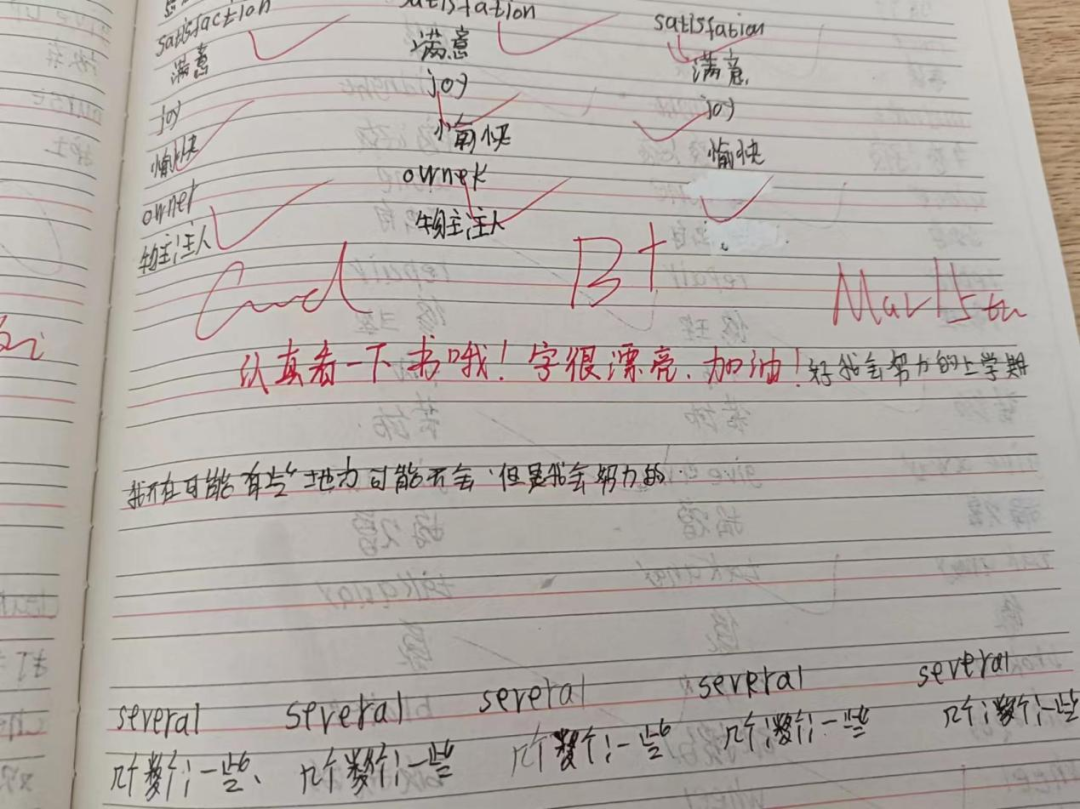 satisfaction satisfation satisfation
满意 满意 满意
joy joy joy
愉快 愉快 愉快
owner owner
物主;主人 物主;主人
Good B+ Mar 15th
认真看一下书哦！字很漂亮、加油！好我会努力的上学期
我不在可能有些地方可能不会，但是我会努力的.
several several several several several
几个;数个;一些、 几个数个;一些 几个数个;一些 几个;数个;一些 几个;数个;一些